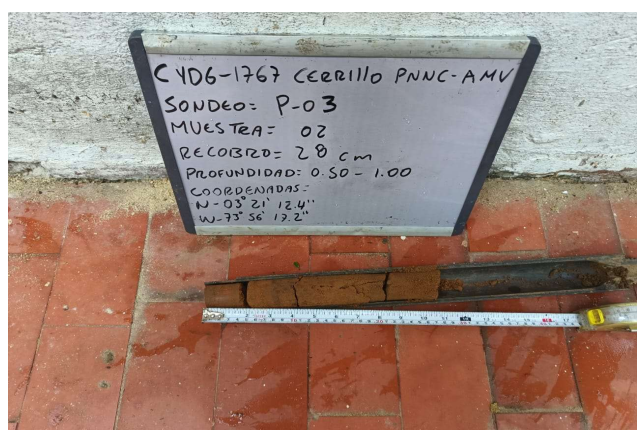 CYDG-1767 CERRILLO PNNC-AMV
SONDEO: P-03
MUESTRA= 02
RECOBRO= 28 cm
PROFUNDIDAD: 0.50 - 1.00
COORDENADAS:
N-03° 21' 12.4"
W-73° 56' 17.2"